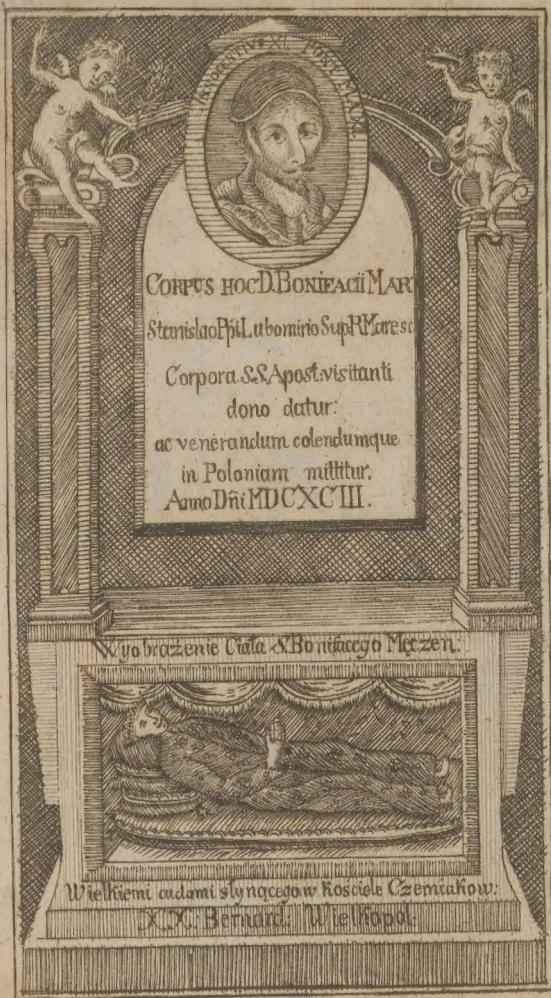 INNOCENTIVS XI. PONT. MAX.
CORPUS HOC D. BONIFACII MAR
Stanislao Ppi Lubomirio Sup R Maresc
Corpora S.S. Apost. visitanti
dono datur:
ac venerandum colendumque
in Poloniam mittitur.
Anno Dñi MDCXCIII.
Wyobrażenie Ciała S. Bonifacego Męczen:
Wielkiemi cudami słynącego w Kościele Czerniakow:
XX. Bernard: Wielkopol: